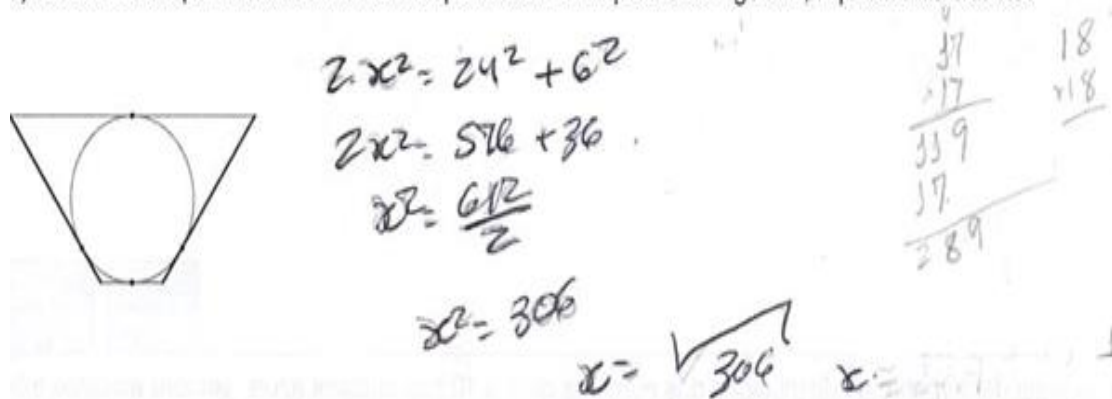 2x² = 24² + 6²
2x² = 576 + 36
x² = 612/2
x² = 306
x = √306 x =
17
×17
119
17
289
18
×18